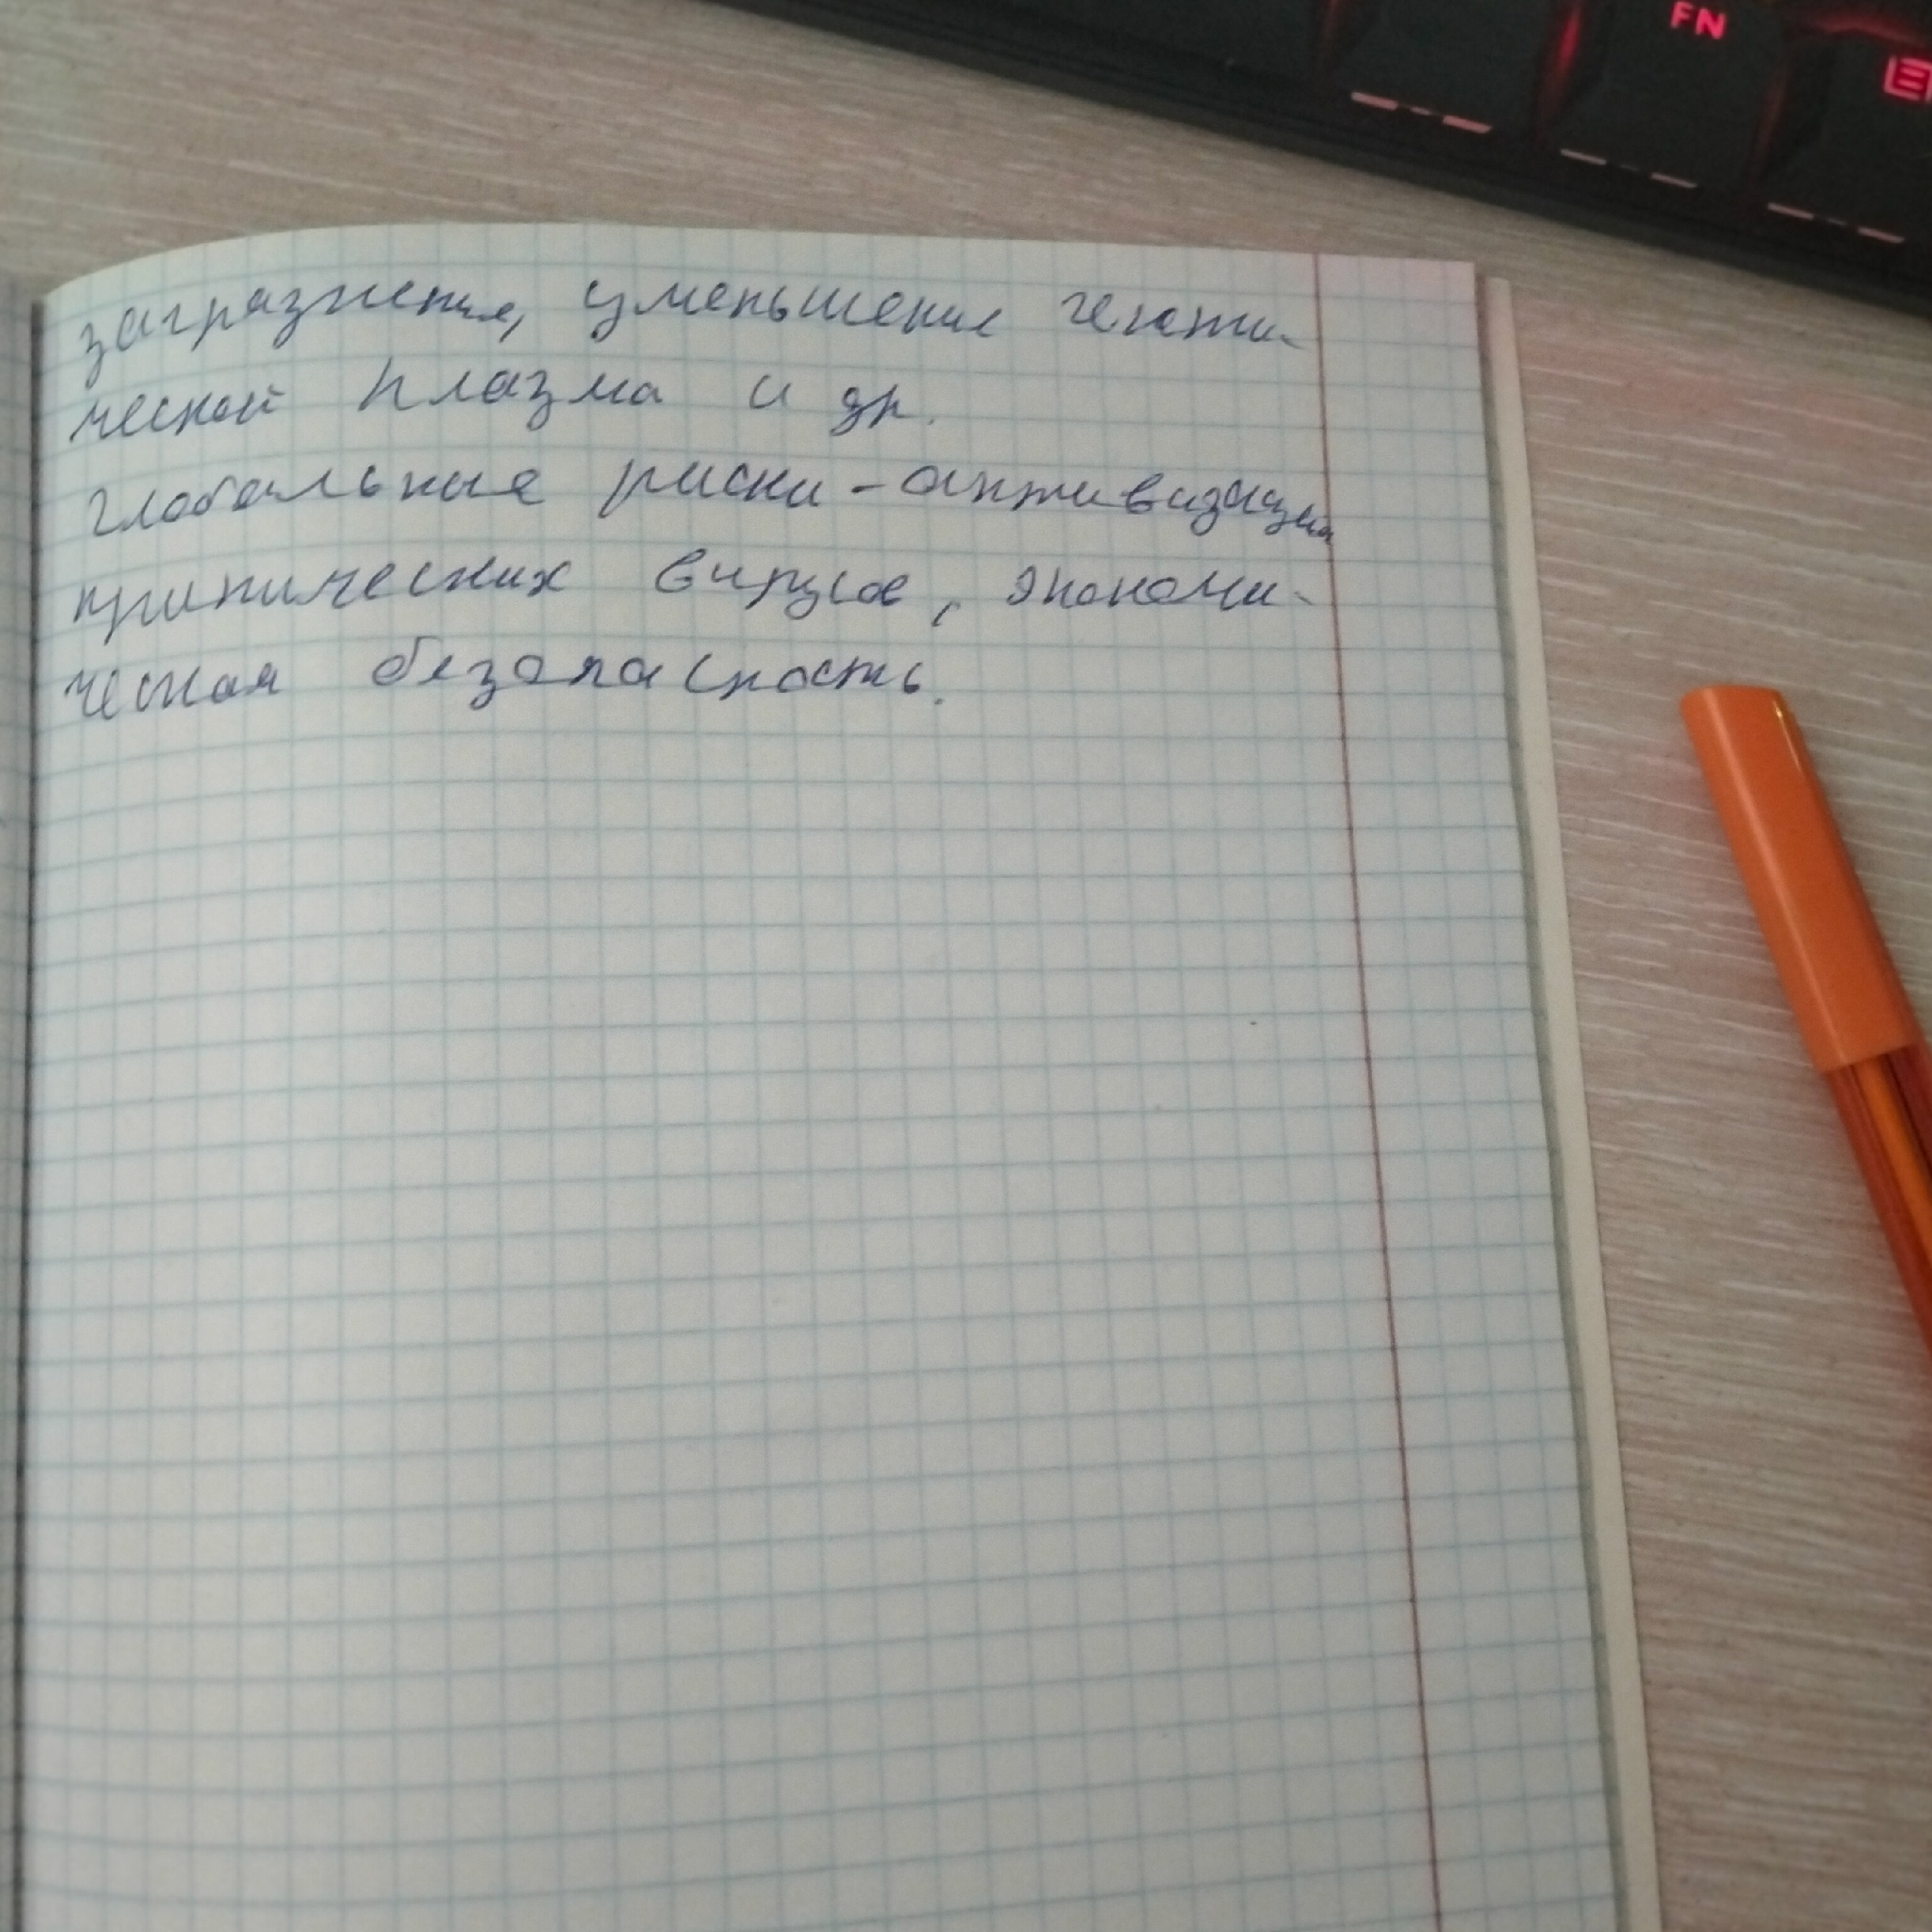 FN
загрязнения, уменьшение генети-
ческой плазма и др.
глобальные риски - активизация
критических вирусов, экономи-
ческая безопасность.